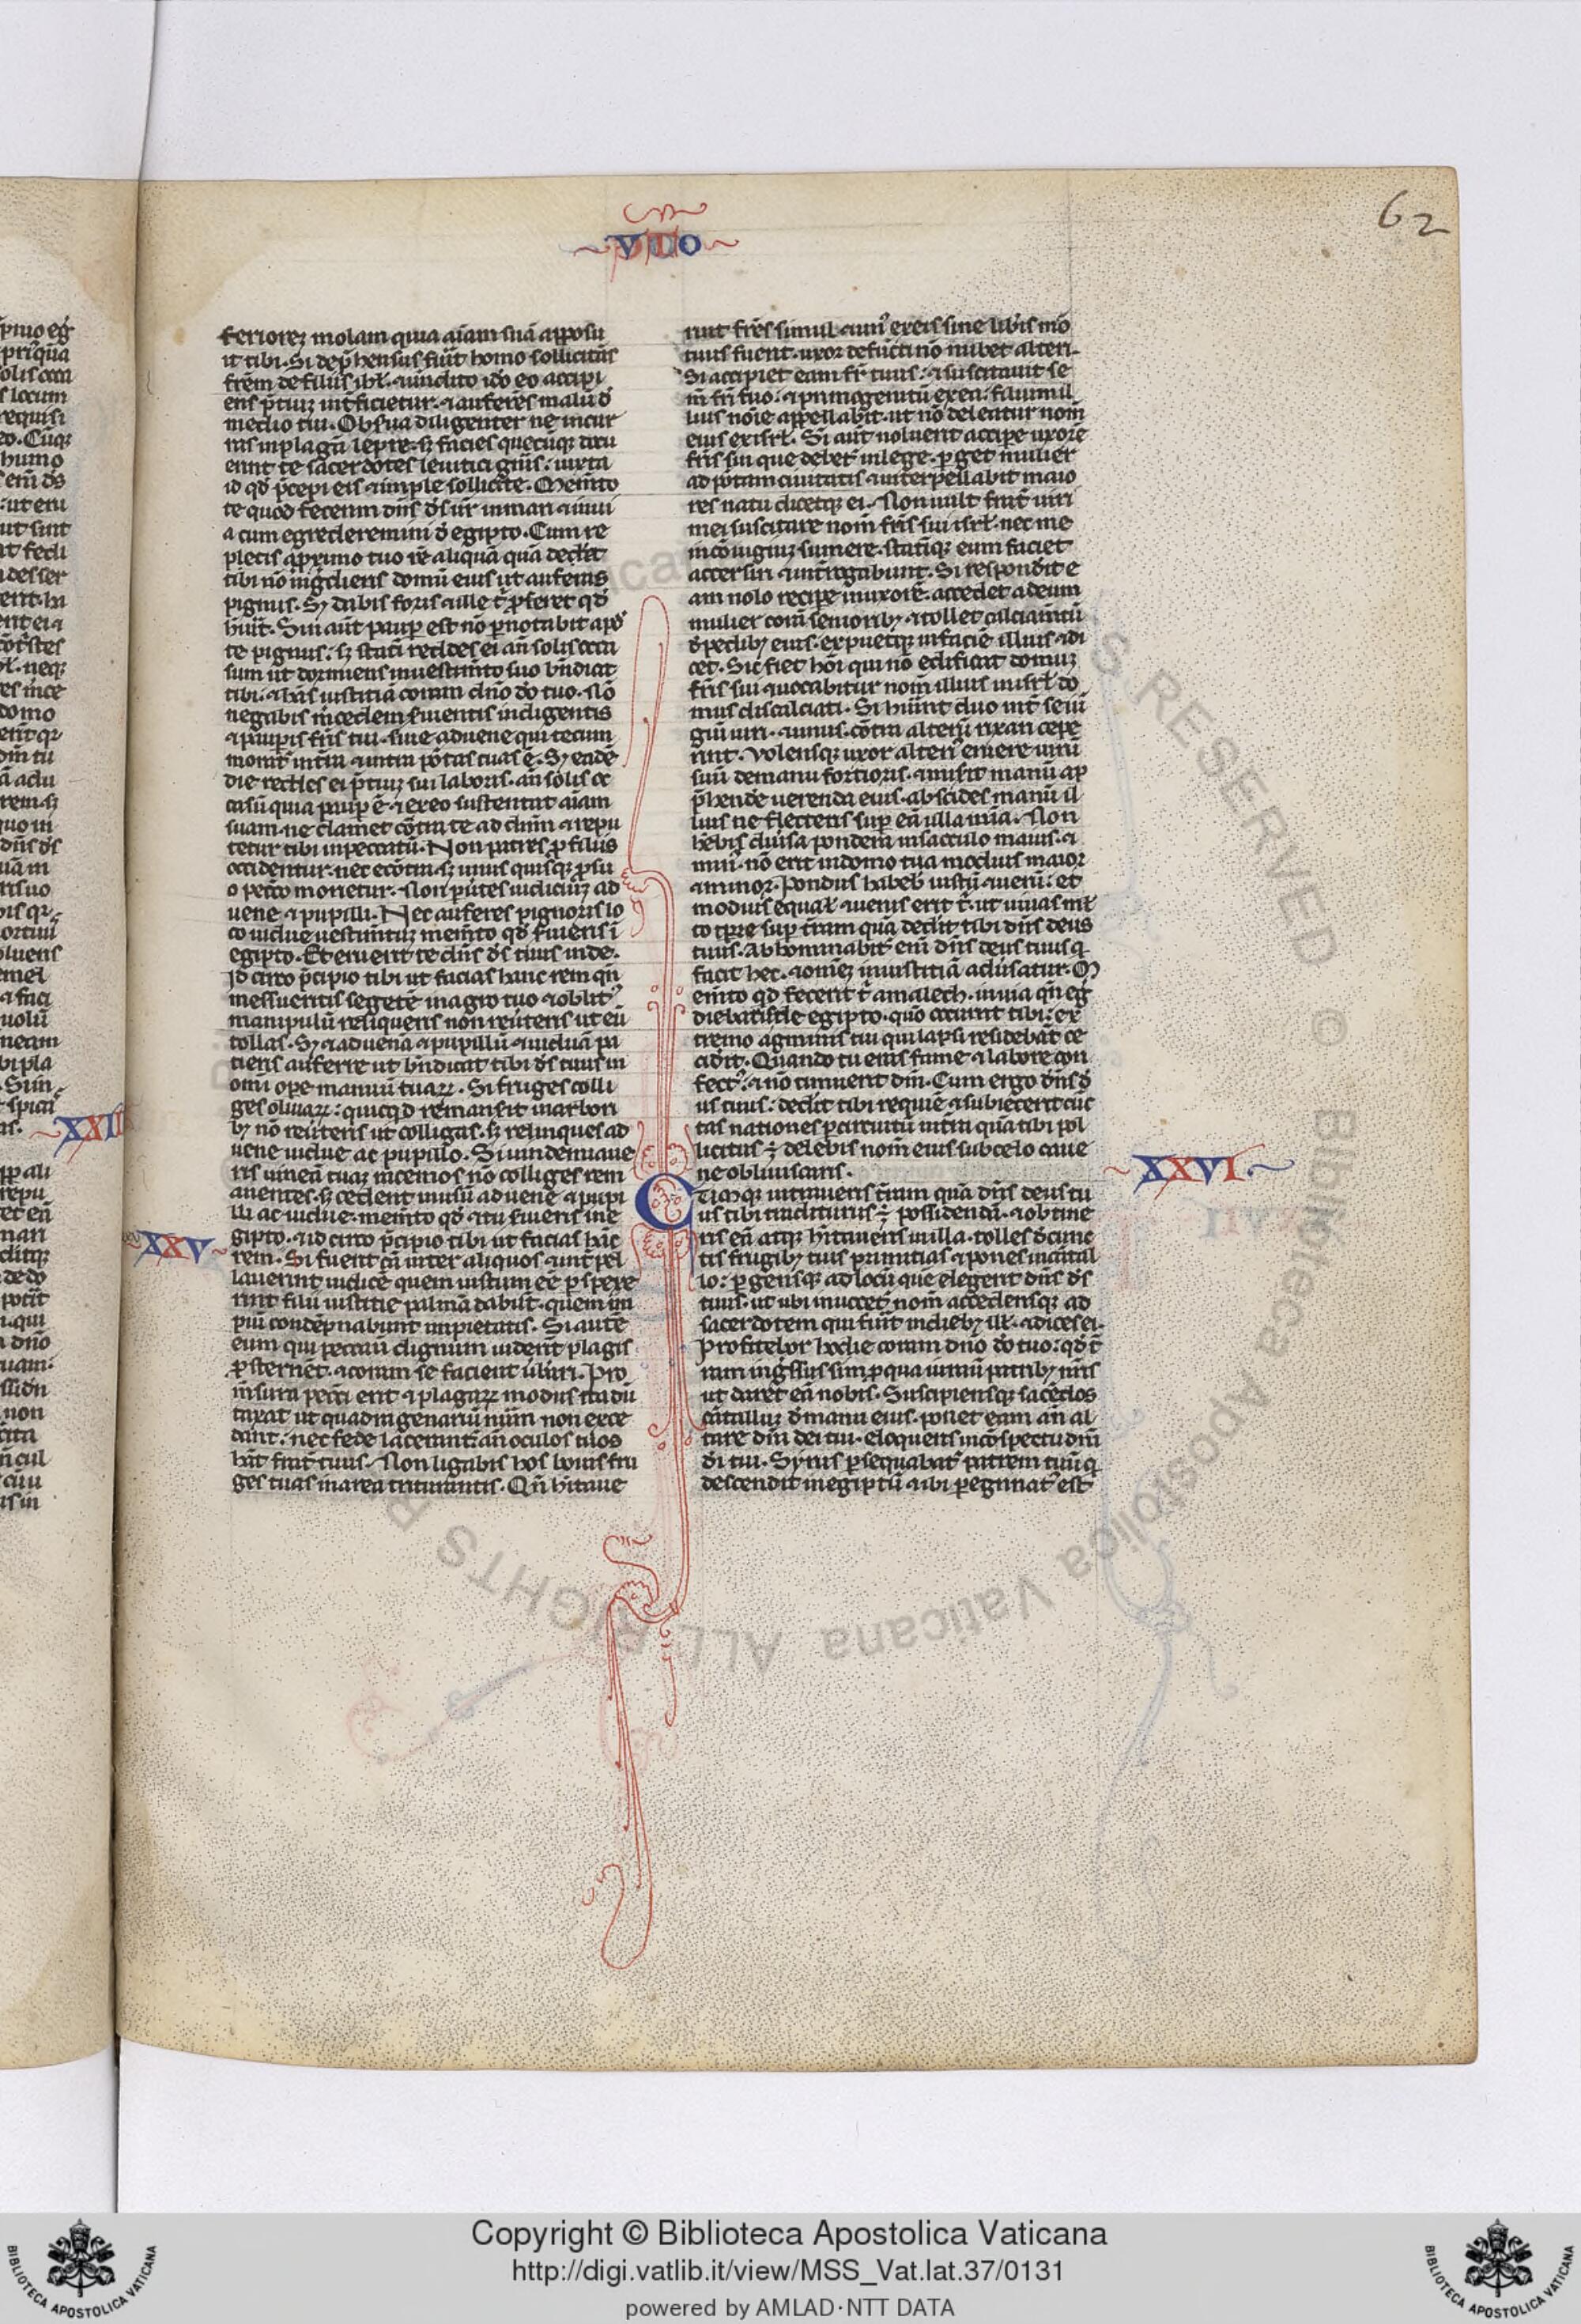 62
VTO
feriorez molam quia aīam suā apposu
it tibi. Si dep̄hensus fūit homo sollicitās
frēm de filiis isrl̄. ⁊ uendito ido eo accipi
ens p̄tiuꝫ int̄ficietur. ⁊ auferes malū đ
medio tui. Obserua diligenter ne incur
ras in plagā lepre. sꝫ facies quecūqꝫ docu
erint te sacerdotes leuitici gn̄is: iuxta
id qđ p̄cepi eis ⁊ imple sollicite. Mem̄to
te quod fecerim dn̄s đs ur̄ in mari ⁊ in ui
a cum egrederemini đ egipto. Cum re
petis a proximo tuo rē aliquā quā debet
tibi nō ing̑dieris domū eius ut auferas
pignus. Sꝫ stabis foris ⁊ ille t̄ p̄feret qđ
hūit. Sin aūt paup est nō p̄noctabit apđ
te pignus: sꝫ stati reddes ei an̄ solis occa
sum ut dormiens in uestim̄to suo bn̄dicat
tibi. ⁊ habeas iustitiā coram dn̄o đo tuo. Nō
negabis m̄cedem seruentis indigentis
⁊ paup̄is fr̄is tui. siue aduene qui tecum
morat̄ in t̄ra ⁊ intra portas tuas ē. Sꝫ eadē
die reddes ei p̄tiuꝫ sui laboris. an̄ solis oc
casū quia paup ē ⁊ ex eo sustentat aīam
suam. ne clamet cōtra te ad dn̄m ⁊ repu
tetur tibi in peccatū. Non patres p̄ filiis
occidentur. nec ecōtra. sꝫ unus quisqꝫ p̄ su
o pecc̄o morietur. Non p̄uertes iudiciuꝫ ad
uene ⁊ pupilli. Nec auferes pignoris lo
co uidue uestim̄tuꝫ mem̄to qđ seruieris ī
egipto. Et eruerit te dn̄s đs tuus inde.
Id circo p̄cipio tibi ut facias hanc rem qn̄
messueritis segetē in agro tuo ⁊ oblit᾽
manipulū reliqueris non reūteris ut eū
tollas. Sꝫ ⁊ aduenā ⁊ pupillū ⁊ uiduā pa
tieris auferre ut bn̄dicat tibi đs tuus in
omī ope manuū tuaꝝ. Si fruges colli
ges oliuaꝝ: quicqđ remanserit in arbori
bꝫ nō reūteris ut colligas. sꝫ relinques ad
uene uidue ac pupillo. Si uindemiaue
ris uineā tuaꝫ racemos nō colliges rem
anentes. sꝫ cedent in usū aduene ⁊ pupi
lli ac uidue. mem̄to qđ ⁊ tu seruieris in e
XXV gipto. ⁊ id circo p̄cipio tibi ut facias hāc
rem. Si fuerit cā inter aliquos ⁊ int̄pel
lauerint iudicē quem iustum eē p̄spexe
rint illi iustitie palmā dabūt. quem im
piū condēpnabunt impietatis. Si autē
eum qui peccauit dignum uiderit plagis
p̄sternet. ⁊ coram se facient ūb̄ari. Pro
m̄sura pecc̄i erit ⁊ plagaꝝ modus ita dū
taxat ut quadragenariū nūm non exce
dant: nec fede laceratus an̄ oculos tuos
habeat frat̄ tuus. Non ligabis hos bouis fru
ges tuas in area triturantis. Qn̄ hitaue
rint frēs simul ⁊ un᾽ ex eis sine lib̄is mō
tuus fuerit. uxor defūcti nō nubet alteri.
Si accipiet eam fr̄ tuus: ⁊ suscitauit se
m̄ fri suo: ⁊ primogenitū ex ea: filium il
lius noīe appellabit. ut nō deleatur nom̄
eius ex isrl̄. Si aūt noluerit accipe uxorē
fr̄is sui que debet̄ in lege. p̄get mulier
ad portam ciuitatis ⁊ interpellabit maio
res natu dicetqꝫ ei. Non uult frat̄ uiri
mei suscitare nom̄ fr̄is sui isrl̄. nec me
in cōiugiuꝫ sumere. statimqꝫ eum faciet
accersiri ⁊ int̄rogabunt. Si responderit e
am nolo recipe in uxorē. accedet ad eum
mulier corā senioribꝫ. ⁊ tollet calciam̄tū
đ pedibꝫ eius. expuetqꝫ in faciē illius ⁊ di
cet. Sic fiet hōi qui nō edificat domuꝫ
fr̄is sui ⁊ uocabitur nom̄ illius in isrl̄ do
mus discalciati. Si hūint duo int̄ se iu
giū uiri. ⁊ unus. cōtra alterū rixari cepe
rint. Volensqꝫ uxor alteri᾽ eruere uirū
suū de manu fortioris. ⁊ miserit manū ap
p̄henderit uerenda eius. abscides manū il
lius ne flecteris sup eā ulla mīa. Non
habebis diuersa pondera in sacculo maius. ⁊
minus. nō erit in domo tua modius maior
⁊ minor. Pondus habebis iustū ⁊ uerū: et
modius equal̄ ⁊ uerus erit t̄. ut uiuas ml̄
to tp̄re sup t̄ram quā dedit tibi dn̄s deus
tuus. Abhominabit̄ eni dn̄s deus tuus q̄
facit hec. ⁊ omnez iniustitiā aduersatur. M
em̄to qđ fecerit t̄ amalech. in uia qn̄ eg̑
diebaris de egipto. quo occurrit tibi: ex
tremo agminis tui qui lapsi residebāt ce
ciderit. Quando tu eras fame ⁊ labore con
fect᾽: ⁊ nō timuerit dm̄. Cum ergo dn̄s đ
us tuus: dedit tibi requiē ⁊ subiecerit cūc
tas nationes p̄ circuitū in t̄ra quā tibi pol
licitus ē delebis nom̄ eius sub celo caue
ne obliuiscaris.
XXVI.
Cumqꝫ intraueris t̄ram quā dn̄s deus tu
us tibi traditurus ē possidendā. ⁊ obtine
ris eā atqꝫ hitaueris in illa. tolles đ cunc
tis frugibꝫ tuis primitias ⁊ pones in cartal
lo: p̄gensqꝫ ad locū quē elegerit dn̄s đs
tuus. ut ibi inuocet̄ nom̄ accedensqꝫ ad
sacerdotem qui fūit in diebꝫ ill̄. ⁊ dices ei.
Profiteor hodie coram dn̄o đo tuo: qđ t̄
ram ing̑ssus sim p̄ qua iurauit patribꝫ nr̄is
ut daret eā nobis. Suscipiensqꝫ sacerdos
cartalluꝫ đ manu eius. ponet eam an̄ al
tare dn̄i dei tui. eloqueris in cōspectu dn̄i
đi tui. Syrus p̄sequabat̄ patrem meū q̄
descendit in egiptū ⁊ ibi p̄egrinat᾽ est
Copyright © Biblioteca Apostolica Vaticana
http://digi.vatlib.it/view/MSS_Vat.lat.37/0131
powered by AMLAD·NTT DATA
BIBLIOTECA APOSTOLICA VATICANA
BIBLIOTECA APOSTOLICA VATICANA